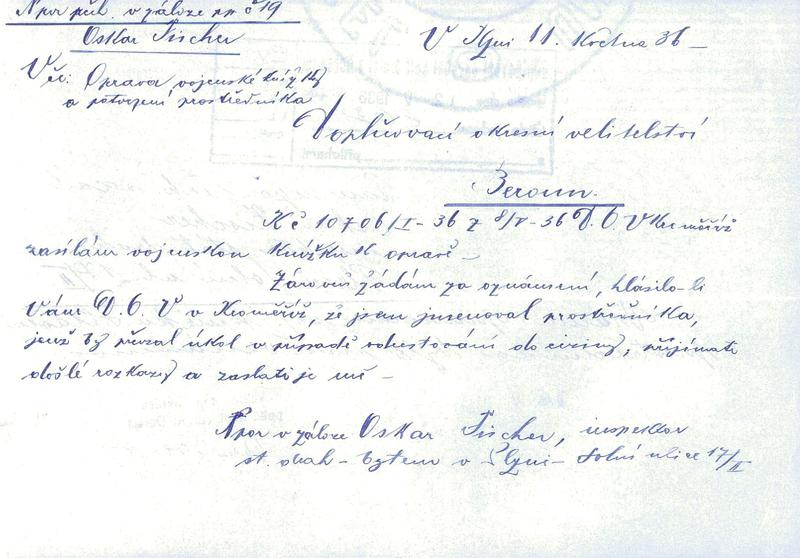 Npor pěch. v záloze pp. č 19
Oskar Fischer
V Plzni 11. Května 36 –
Věc: Oprava vojenské knížky
a potvrzení prostředníka
Doplňovací okresní velitelství
Beroun.
K č 10706/I-36 z 8/V-36 D.O.V Kroměříž
zasílám vojenskou knížku k opravě –
Zároveň žádám za oznámení, hlásilo-li
Vám D.O.V v Kroměříž, že jsem jmenoval prostředníka,
jenž by převzal úkol v případě odcestování do ciziny, přijímati
došlé rozkazy a zaslati je mě –
Npor v záloze Oskar Fischer, inspektor
st. drah – bytem v Plzni – Solní ulice 17/II